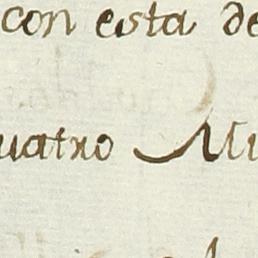 con esta de
uatro Mu